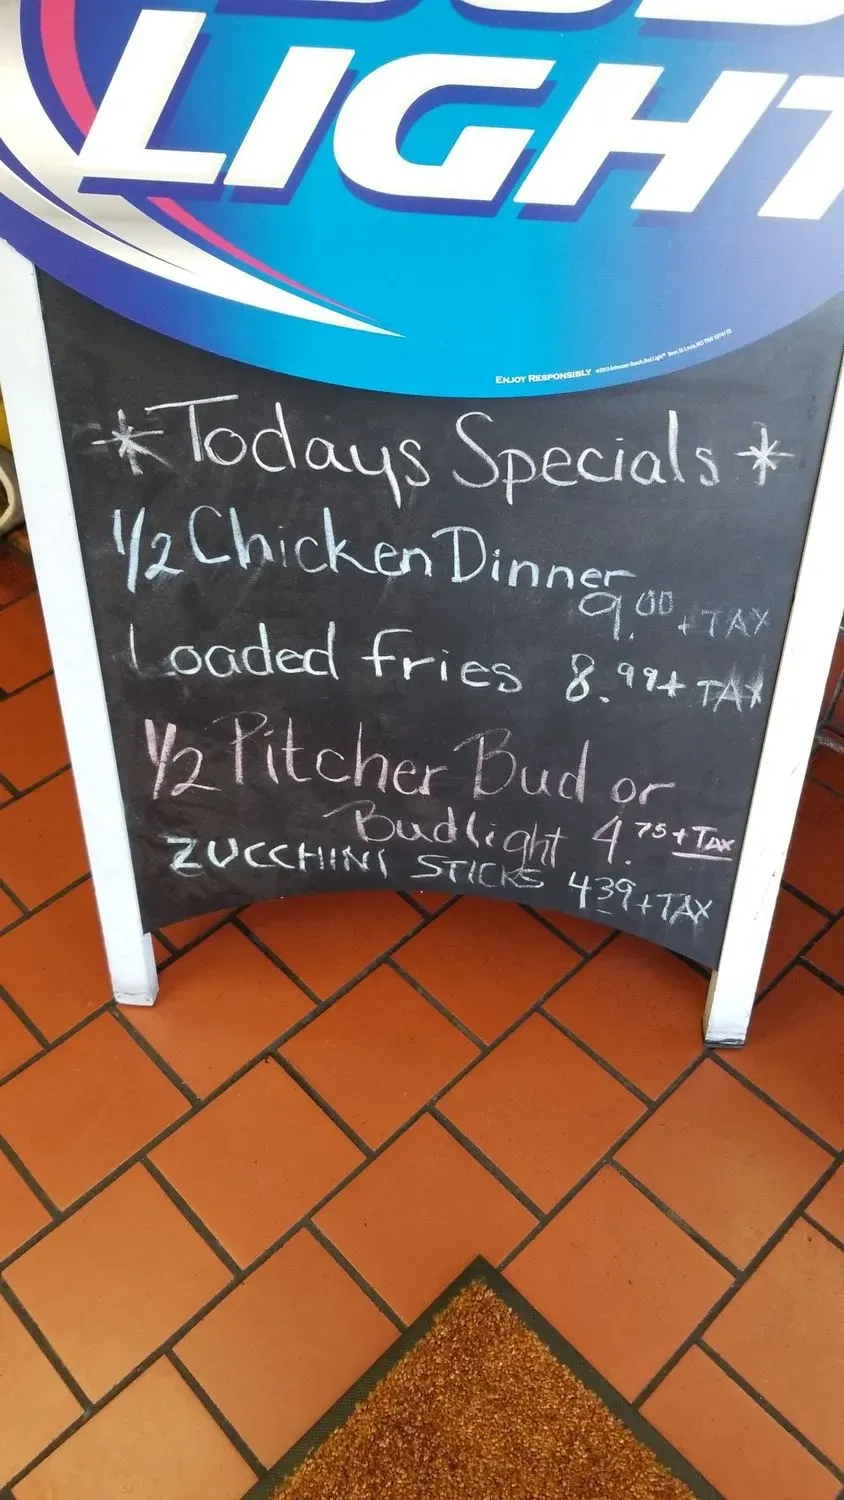 LIGHT
ENJOY RESPONSIBLY
*Todays Specials*
1/2 Chicken Dinner
9.00 + TAX
Loaded fries 8.99 + TAX
1/2 Pitcher Bud or
Budlight 4.75 + TAX
ZUCCHINI STICKS 4.39 + TAX